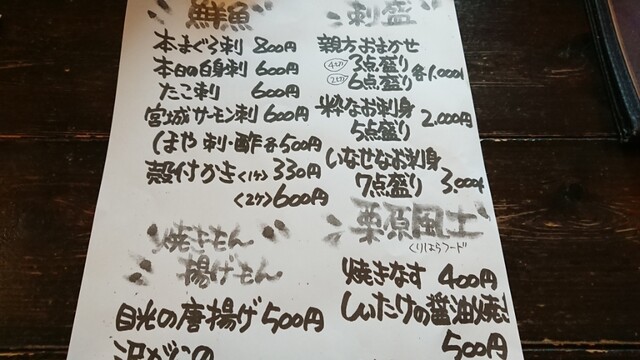 鮮魚
本まぐろ刺 800円
本日の白身刺 600円
たこ刺 600円
宮城サーモン刺 600円
ほや 刺・酢 各500円
殻付かき<1ケ> 330円
<2ケ> 600円
焼きもん
揚げもん
目光の唐揚げ 500円
刺盛
親方おまかせ
3点盛り
6点盛り 各1,000円
粋なお刺身
5点盛り 2,000円
いなせなお刺身
7点盛り 3,000円
栗原風土
くりはらフード
焼きなす 400円
しいたけの醤油焼き
500円